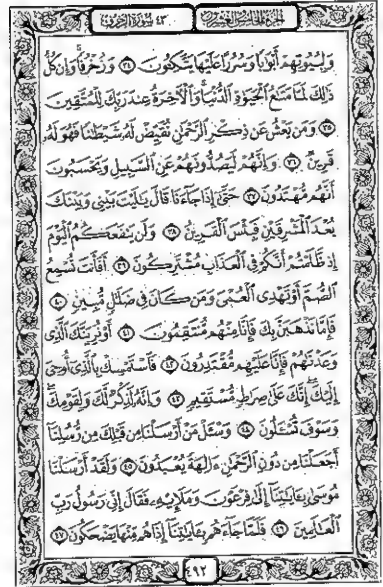 الجزء الخامس والعشرون ٤٣ سورة الزخرف
وَلِبُيُوتِهِمْ أَبْوَابًا وَسُرُرًا عَلَيْهَا يَتَّكِئُونَ ٣٤ وَزُخْرُفًا وَإِن كُلُّ
ذَٰلِكَ لَمَّا مَتَاعُ الْحَيَاةِ الدُّنْيَا وَالْآخِرَةُ عِندَ رَبِّكَ لِلْمُتَّقِينَ
٣٥ وَمَن يَعْشُ عَن ذِكْرِ الرَّحْمَٰنِ نُقَيِّضْ لَهُ شَيْطَانًا فَهُوَ لَهُ
قَرِينٌ ٣٦ وَإِنَّهُمْ لَيَصُدُّونَهُمْ عَنِ السَّبِيلِ وَيَحْسَبُونَ
أَنَّهُم مُّهْتَدُونَ ٣٧ حَتَّىٰ إِذَا جَاءَنَا قَالَ يَا لَيْتَ بَيْنِي وَبَيْنَكَ
بُعْدَ الْمَشْرِقَيْنِ فَبِئْسَ الْقَرِينُ ٣٨ وَلَن يَنفَعَكُمُ الْيَوْمَ
إِذ ظَّلَمْتُمْ أَنَّكُمْ فِي الْعَذَابِ مُشْتَرِكُونَ ٣٩ أَفَأَنتَ تُسْمِعُ
الصُّمَّ أَوْ تَهْدِي الْعُمْيَ وَمَن كَانَ فِي ضَلَالٍ مُّبِينٍ ٤٠
فَإِمَّا نَذْهَبَنَّ بِكَ فَإِنَّا مِنْهُم مُّنتَقِمُونَ ٤١ أَوْ نُرِيَنَّكَ الَّذِي
وَعَدْنَاهُمْ فَإِنَّا عَلَيْهِم مُّقْتَدِرُونَ ٤٢ فَاسْتَمْسِكْ بِالَّذِي أُوحِيَ
إِلَيْكَ إِنَّكَ عَلَىٰ صِرَاطٍ مُّسْتَقِيمٍ ٤٣ وَإِنَّهُ لَذِكْرٌ لَّكَ وَلِقَوْمِكَ
وَسَوْفَ تُسْأَلُونَ ٤٤ وَسْـَٔلْ مَنْ أَرْسَلْنَا مِن قَبْلِكَ مِن رُّسُلِنَا
أَجَعَلْنَا مِن دُونِ الرَّحْمَٰنِ آلِهَةً يُعْبَدُونَ ٤٥ وَلَقَدْ أَرْسَلْنَا
مُوسَىٰ بِآيَاتِنَا إِلَىٰ فِرْعَوْنَ وَمَلَإِيْهِ فَقَالَ إِنِّي رَسُولُ رَبِّ
الْعَالَمِينَ ٤٦ فَلَمَّا جَاءَهُم بِآيَاتِنَا إِذَا هُم مِّنْهَا يَضْحَكُونَ ٤٧
٤٩٢